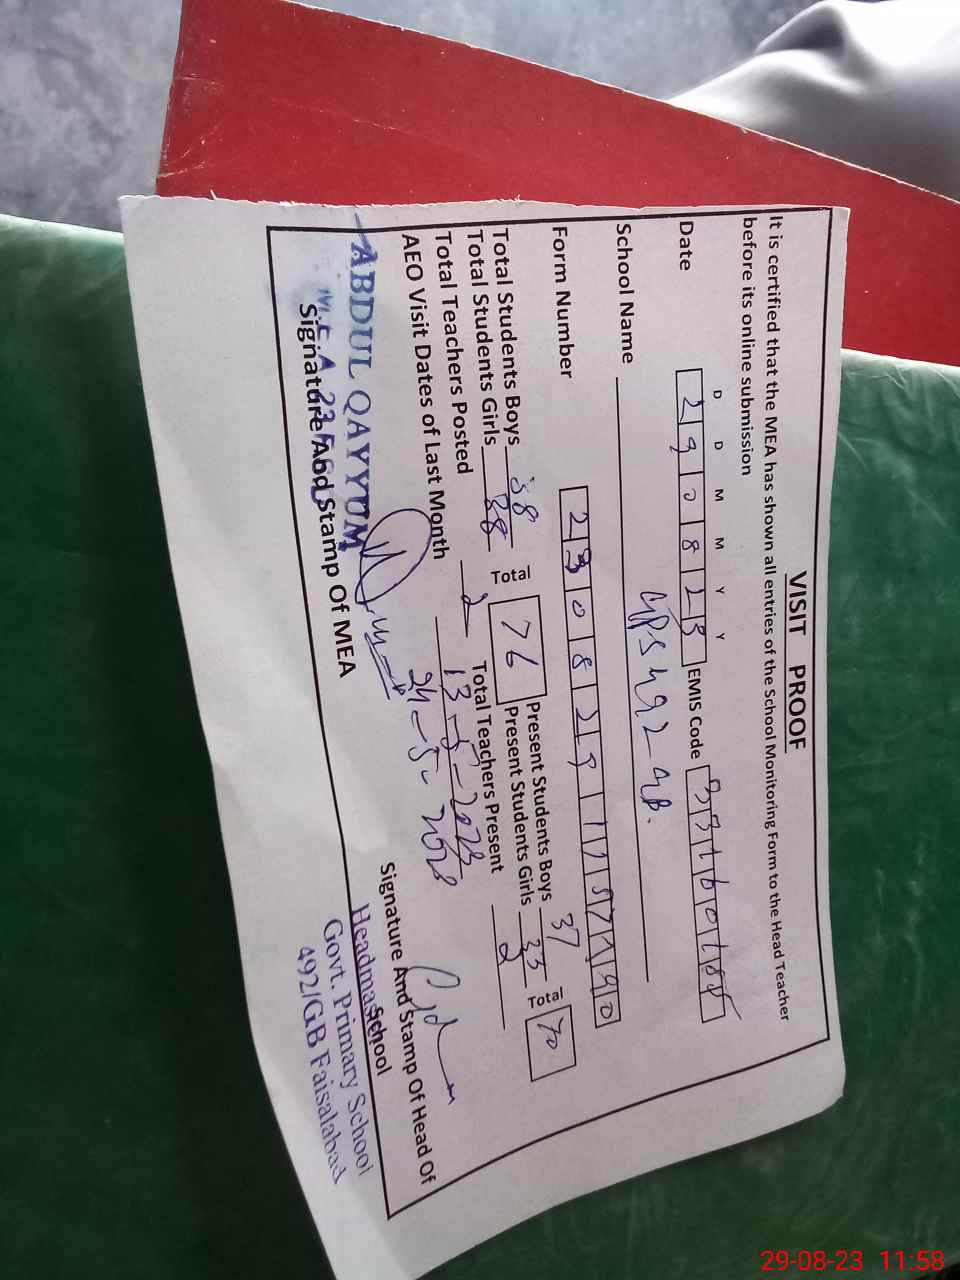 VISIT PROOF
It is certified that the MEA has shown all entries of the School Monitoring Form to the Head Teacher
before its online submission
D D M M Y Y
Date 290823 EMIS Code
School Name GPS 492-GB.
Form Number
Total Students Boys 38 Total 76 Present Students Boys 37 Total 70
Total Students Girls 38 Present Students Girls 33
Total Teachers Posted 2 Total Teachers Present 2
AEO Visit Dates of Last Month 13-5-2023
24-5-2023
ABDUL QAYYUM
M.E.A 23
Signature And Stamp Of MEA
Signature And Stamp Of Head Of
School
Headmaster
Govt. Primary School
492/GB Faisalabad
29-08-23 11:58